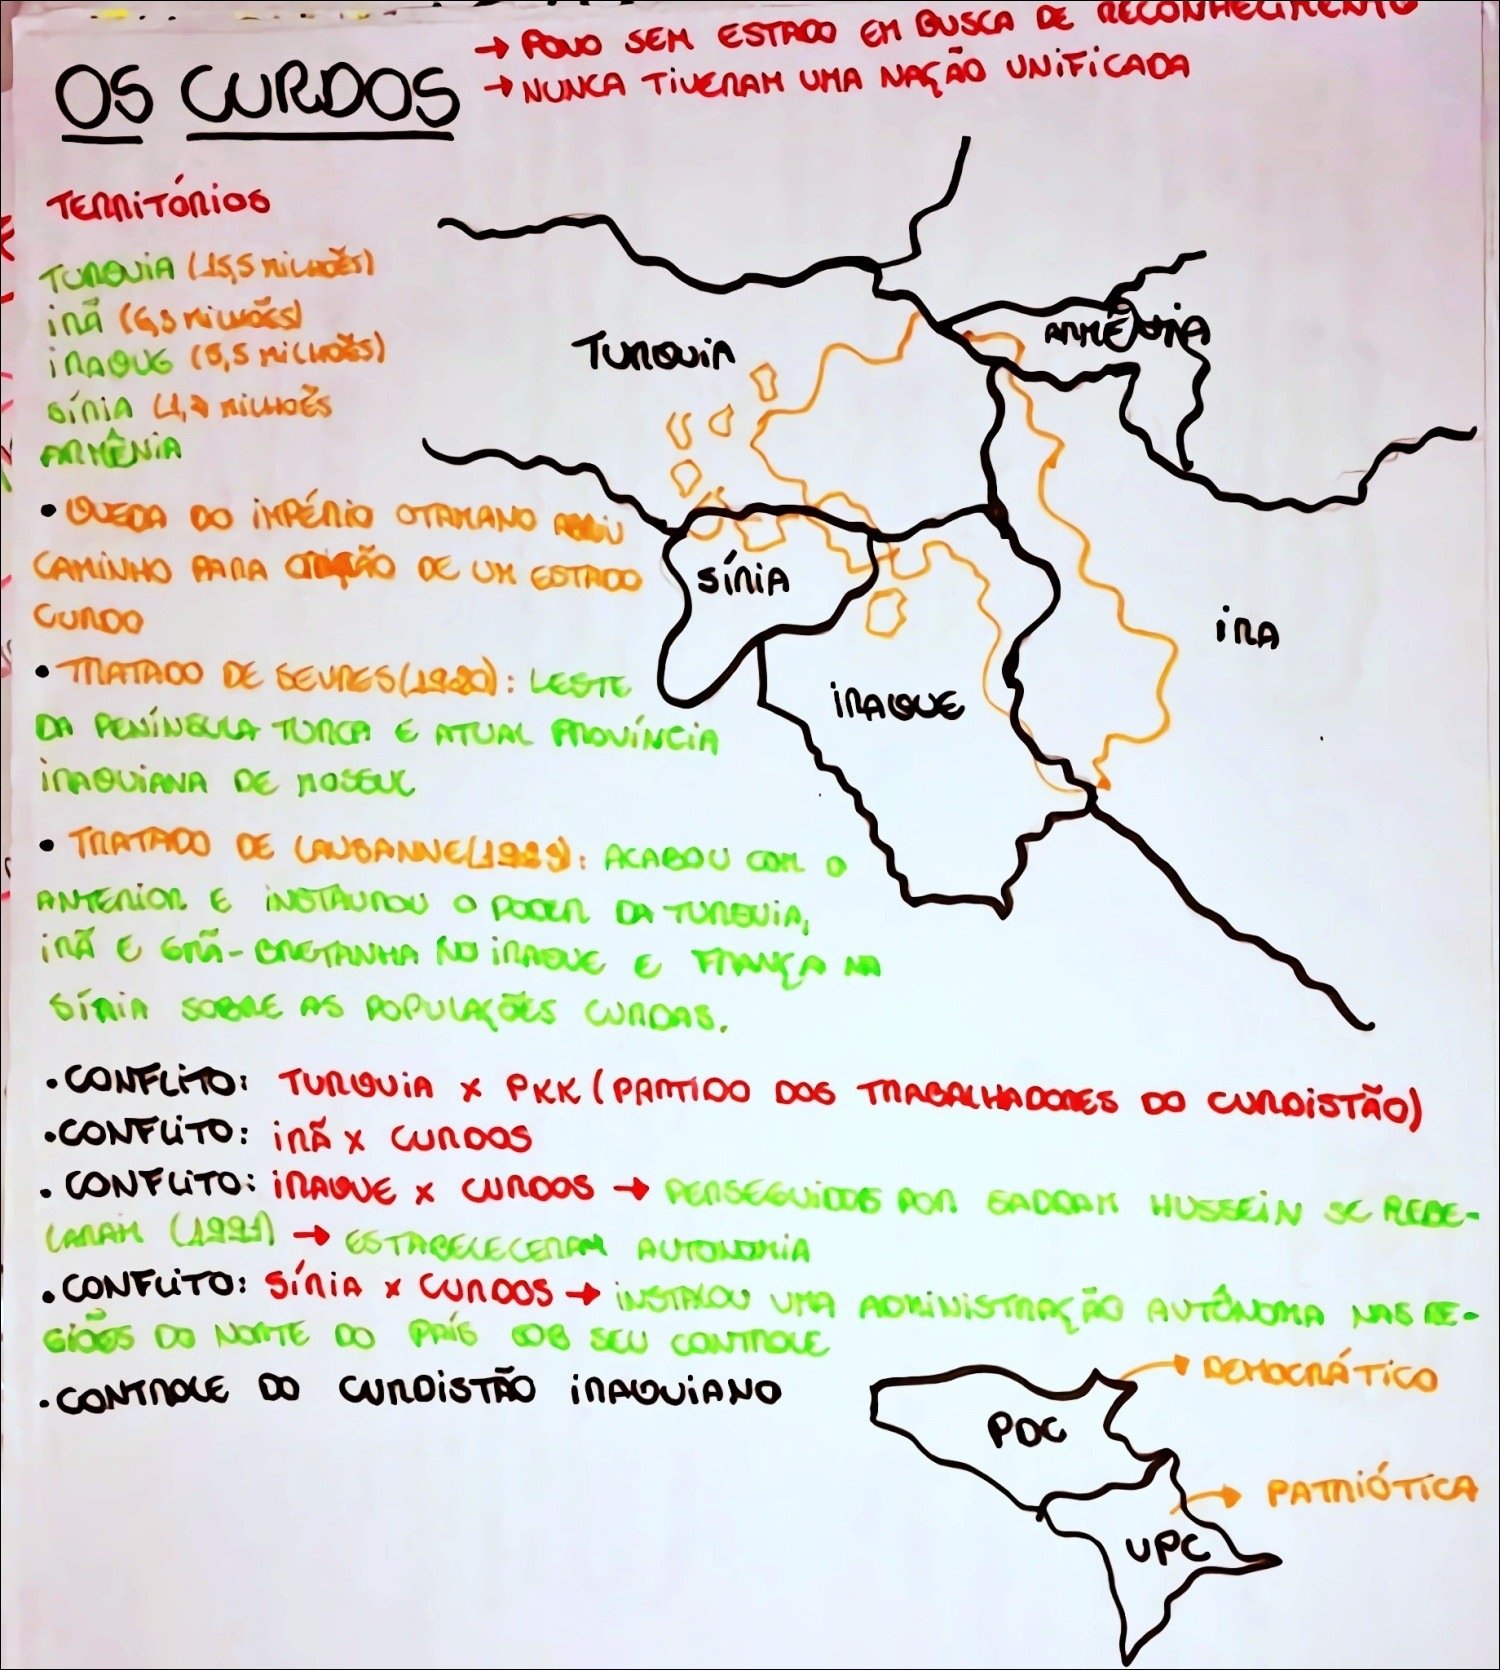 → POVO SEM ESTADO EM BUSCA DE RECONHECIMENTO
OS CURDOS
→ NUNCA TIVERAM UMA NAÇÃO UNIFICADA
TERRITÓRIOS
TURQUIA (15,5 MILHÕES)
IRÃ ( MILHÕES)
IRAQUE (5,5 MILHÕES)
SÍRIA ( MILHÕES
ARMÊNIA
• QUEDA DO IMPÉRIO OTAMANO ABRIU
CAMINHO PARA CRIAÇÃO DE UM ESTADO
CURDO
• TRATADO DE SEVRES (1920): LESTE
DA PENÍNSULA TURCA E ATUAL PROVÍNCIA
IRAQUIANA DE MOSSUL
• TRATADO DE LAUSANNE (1923): ACABOU COM O
ANTERIOR E INSTAUROU O PODER DA TURQUIA,
IRÃ E GRÃ-BRETANHA NO IRAQUE E FRANÇA NA
SÍRIA SOBRE AS POPULAÇÕES CURDAS.
• CONFLITO: TURQUIA X PKK (PARTIDO DOS TRABALHADORES DO CURDISTÃO)
• CONFLITO: IRÃ X CURDOS
• CONFLITO: IRAQUE X CURDOS → PERSEGUIDOS POR SADDAM HUSSEIN SE REBE-
LARAM (1991) → ESTABELECERAM AUTONOMIA
• CONFLITO: SÍRIA X CURDOS → INSTALOU UMA ADMINISTRAÇÃO AUTÔNOMA NAS RE-
GIÕES DO NORTE DO PAÍS SOB SEU CONTROLE
• CONTROLE DO CURDISTÃO IRAQUIANO
TURQUIA
ARMÊNIA
SÍRIA
IRAQUE
IRA
PDC
→ DEMOCRÁTICO
UPC
→ PATRIÓTICA